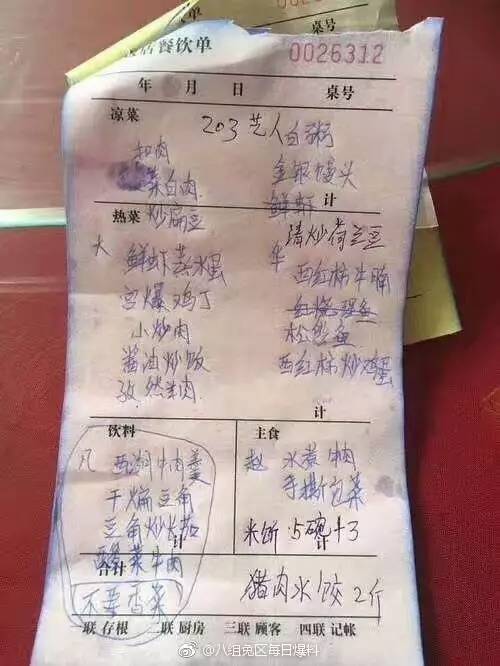 店餐饮单
0026312
年 月 日 桌号
凉菜 203艺人白粥
扣肉 金银馒头
菜白肉 鲜虾
计
热菜 炒扁豆 清炒荷兰豆
大 鲜虾蒸水蛋 华 西红柿牛腩
宫爆鸡丁 红烧鲤鱼
小炒肉 松鼠鱼
酱油炒饭 西红柿炒鸡蛋
孜然羊肉
计
饮料 主食
凡 西湖牛肉羹 赵 水煮牛肉
干煸豆角 手撕包菜
豆角炒长茄 米饭 5碗+3
计 计
酸菜牛肉
合计 猪肉水饺 2斤
不要香菜
一联 存根 二联 厨房 三联 顾客 四联 记帐
@八组兔区每日爆料